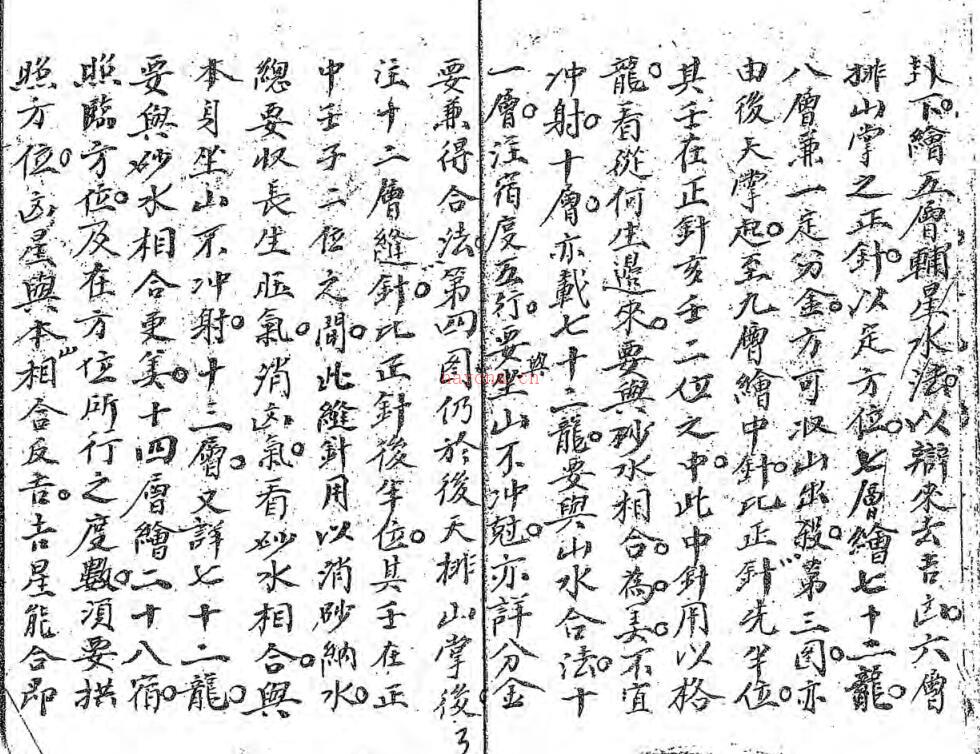 卦下。繪五層輔星水法。以辯來去吉凶。六層
排山掌之正針。以定方位。七層繪七十二龍。
八層兼一定分金。方可收山出殺。第三圖亦
由後天掌起。至九層繪中針。比正針先半位。
其壬在正針亥壬二位之中。此中針用以格
龍。看從何生邊來。要與砂水相合為美。不宜
冲射。十層。亦載七十二龍。要與山水合法。十
一層。注宿度五行。要與坐山不冲尅。亦詳分金
要兼得合法。第四圖。仍於後天排山掌後
注十二層縫針。比正針後半位。其壬在正
中壬子二位之間。此縫針用以消砂納水。
總要収長生旺氣。消凶氣。看砂水相合。與
本身坐山不冲射。十三層。又詳七十二龍。
要與砂水相合更美。十四層繪二十八宿。
照臨方位。及在方位所行之度數。須要拱
照方位。凶星與本山相合反吉。吉星能合即
3
nayona.cn